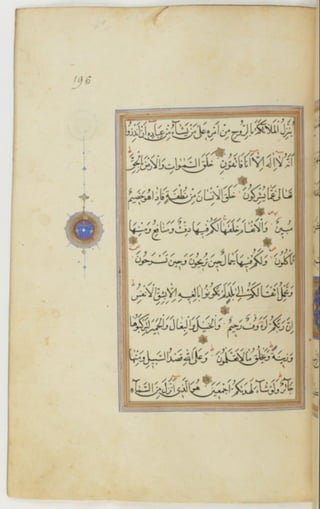 196
ينزل الملائكة بالروح من امره على من يشاء من عباده ان انذروا
انه لا اله الا انا فاتقون خلق السموات والارض بالحق
تعالى عما يشركون خلق الانسان من نطفة فاذا هو خصيم
مبين والانعام خلقها لكم فيها دفء ومنافع ومنها
تاكلون ولكم فيها جمال حين تريحون وحين تسرحون
وتحمل اثقالكم الى بلد لم تكونوا بالغيه الا بشق الانفس
ان ربكم لرؤف رحيم والخيل والبغال والحمير لتركبوها
وزينة ويخلق ما لا تعلمون وعلى الله قصد السبيل ومنها
جائر ولو شاء لهديكم اجمعين هو الذي انزل من السماء